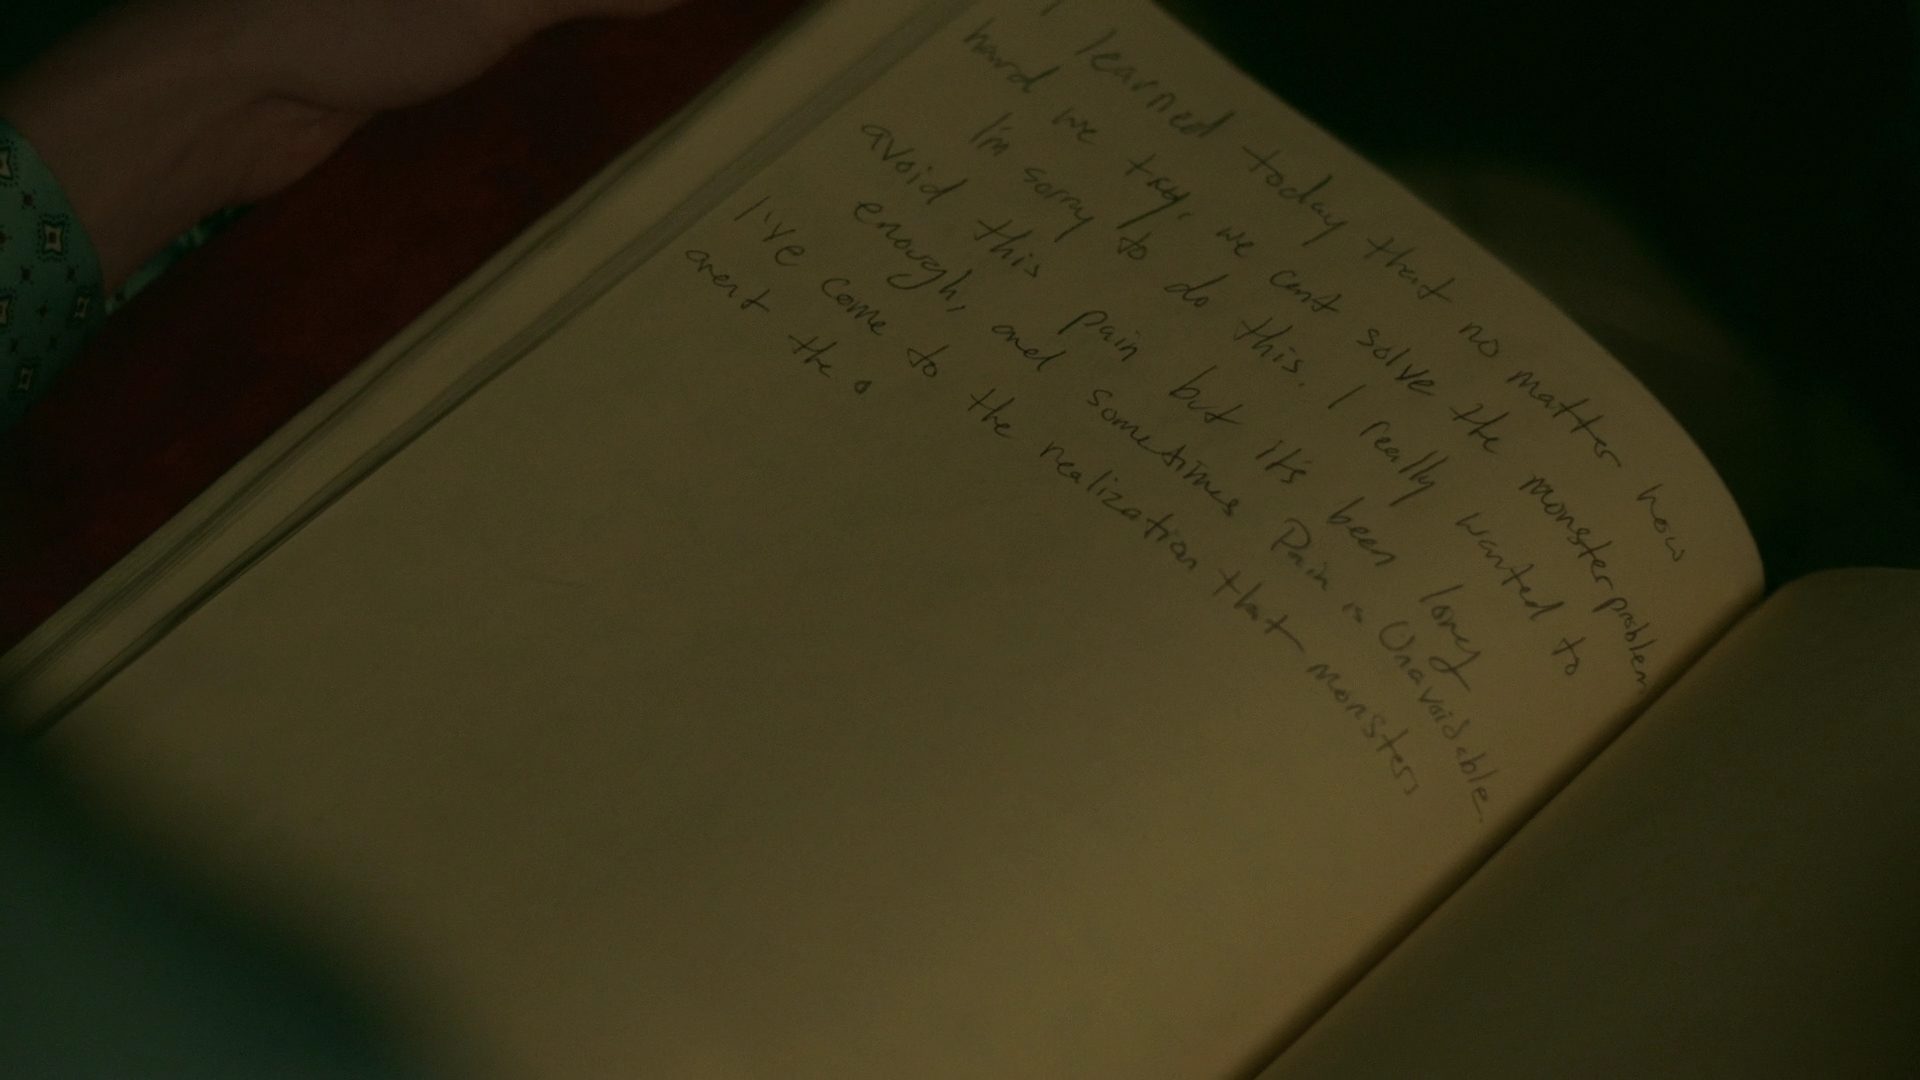 I learned today that no matter how
hard we try, we cant solve the monster problem
I'm sorry to do this. I really wanted to
avoid this pain but it's been long
enough, and sometimes Pain is Unavoidable.
I've come to the realization that monsters
arent the o